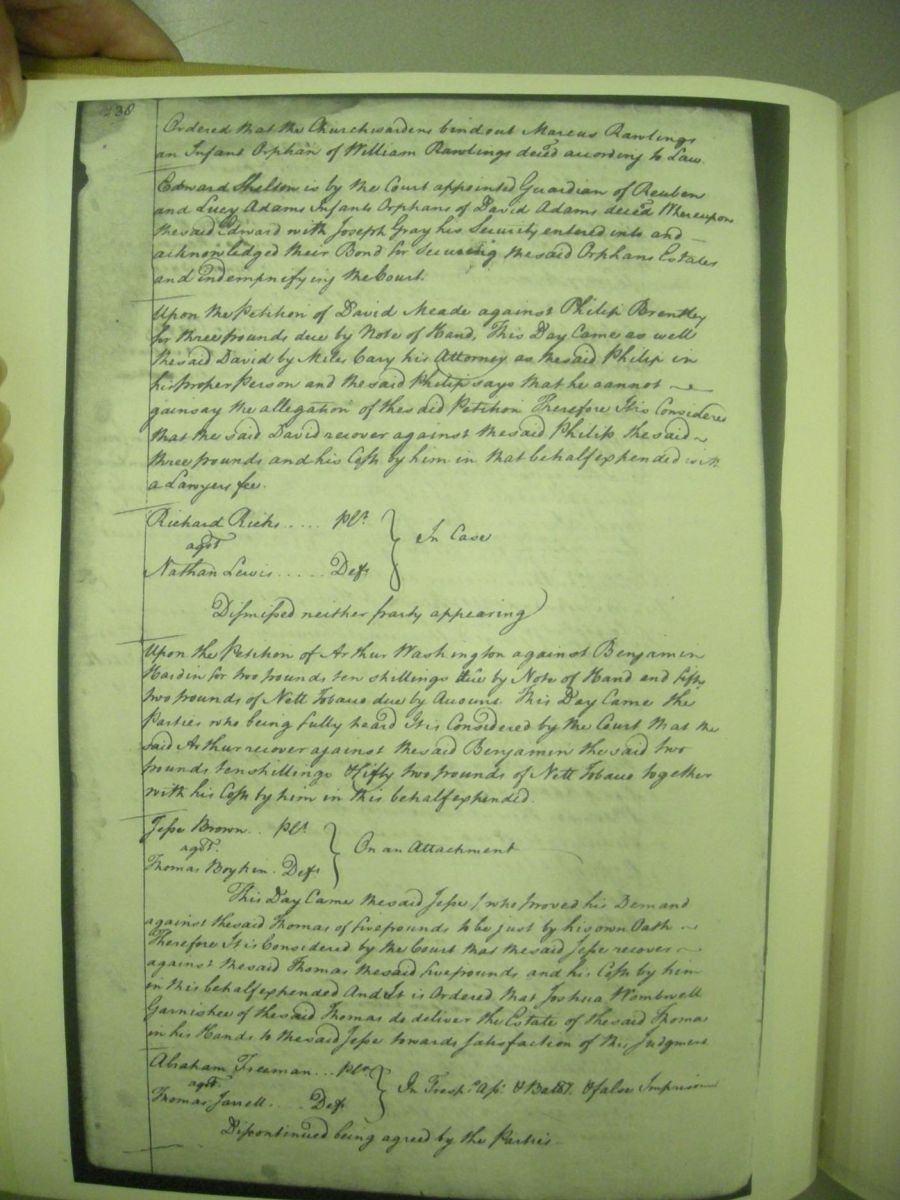 238
Ordered that the Churchwardens bind out Marcus Rawlings
an Infant Orphan of William Rawlings deced according to Law.
Edward Shelton is by the Court appointed Guardian of Reuben
and Lucy Adams Infants Orphans of David Adams deced Whereupon
the said Edward with Joseph Gray his Security entered into and
acknowledged their Bond for securing the said Orphans Estates
and indempnifying the Court.
Upon the Petition of David Meade against Philip Brantley
for three pounds due by Note of Hand, This Day Came as well
the said David by Miles Cary his Attorney as the said Philip in
his proper person and the said Philip says that he cannot
gainsay the allegation of the said Petition Therefore It is Considered
that the said David recover against the said Philip the said
three pounds and his Costs by him in that behalf expended with
a Lawyers fee.
Richard Ricks ..... Plt.
agst } In Case
Nathan Lewis ..... Deft
Dismissed neither party appearing
Upon the Petition of Arthur Washington against Benjamin
Hardin for two pounds ten shillings due by Note of Hand and fifty
two pounds of Nett Tobacco due by Account This Day Came the
Parties who being fully heard It is Considered by the Court that the
said Arthur recover against the said Benjamin the said two
pounds ten shillings & fifty two pounds of Nett Tobacco together
with his Costs by him in this behalf expended.
Jesse Brown .. Plt.
agst. } On an Attachment
Thomas Boykin . Deft
This Day Came the said Jesse who proved his Demand
against the said Thomas of five pounds to be just by his own Oath
Therefore It is Considered by the Court that the said Jesse recover
against the said Thomas the said five pounds and his Costs by him
in this behalf expended And It is Ordered that Joshua Wombwell
Garnishee of the said Thomas do deliver the Estate of the said Thomas
in his Hands to the said Jesse towards Satisfaction of this Judgment
Abraham Freeman ... Plt
agst. } In Tresps. Ass. & Batt. & false Imprison
Thomas Jarrell .... Deft
Discontinued being agreed by the Parties